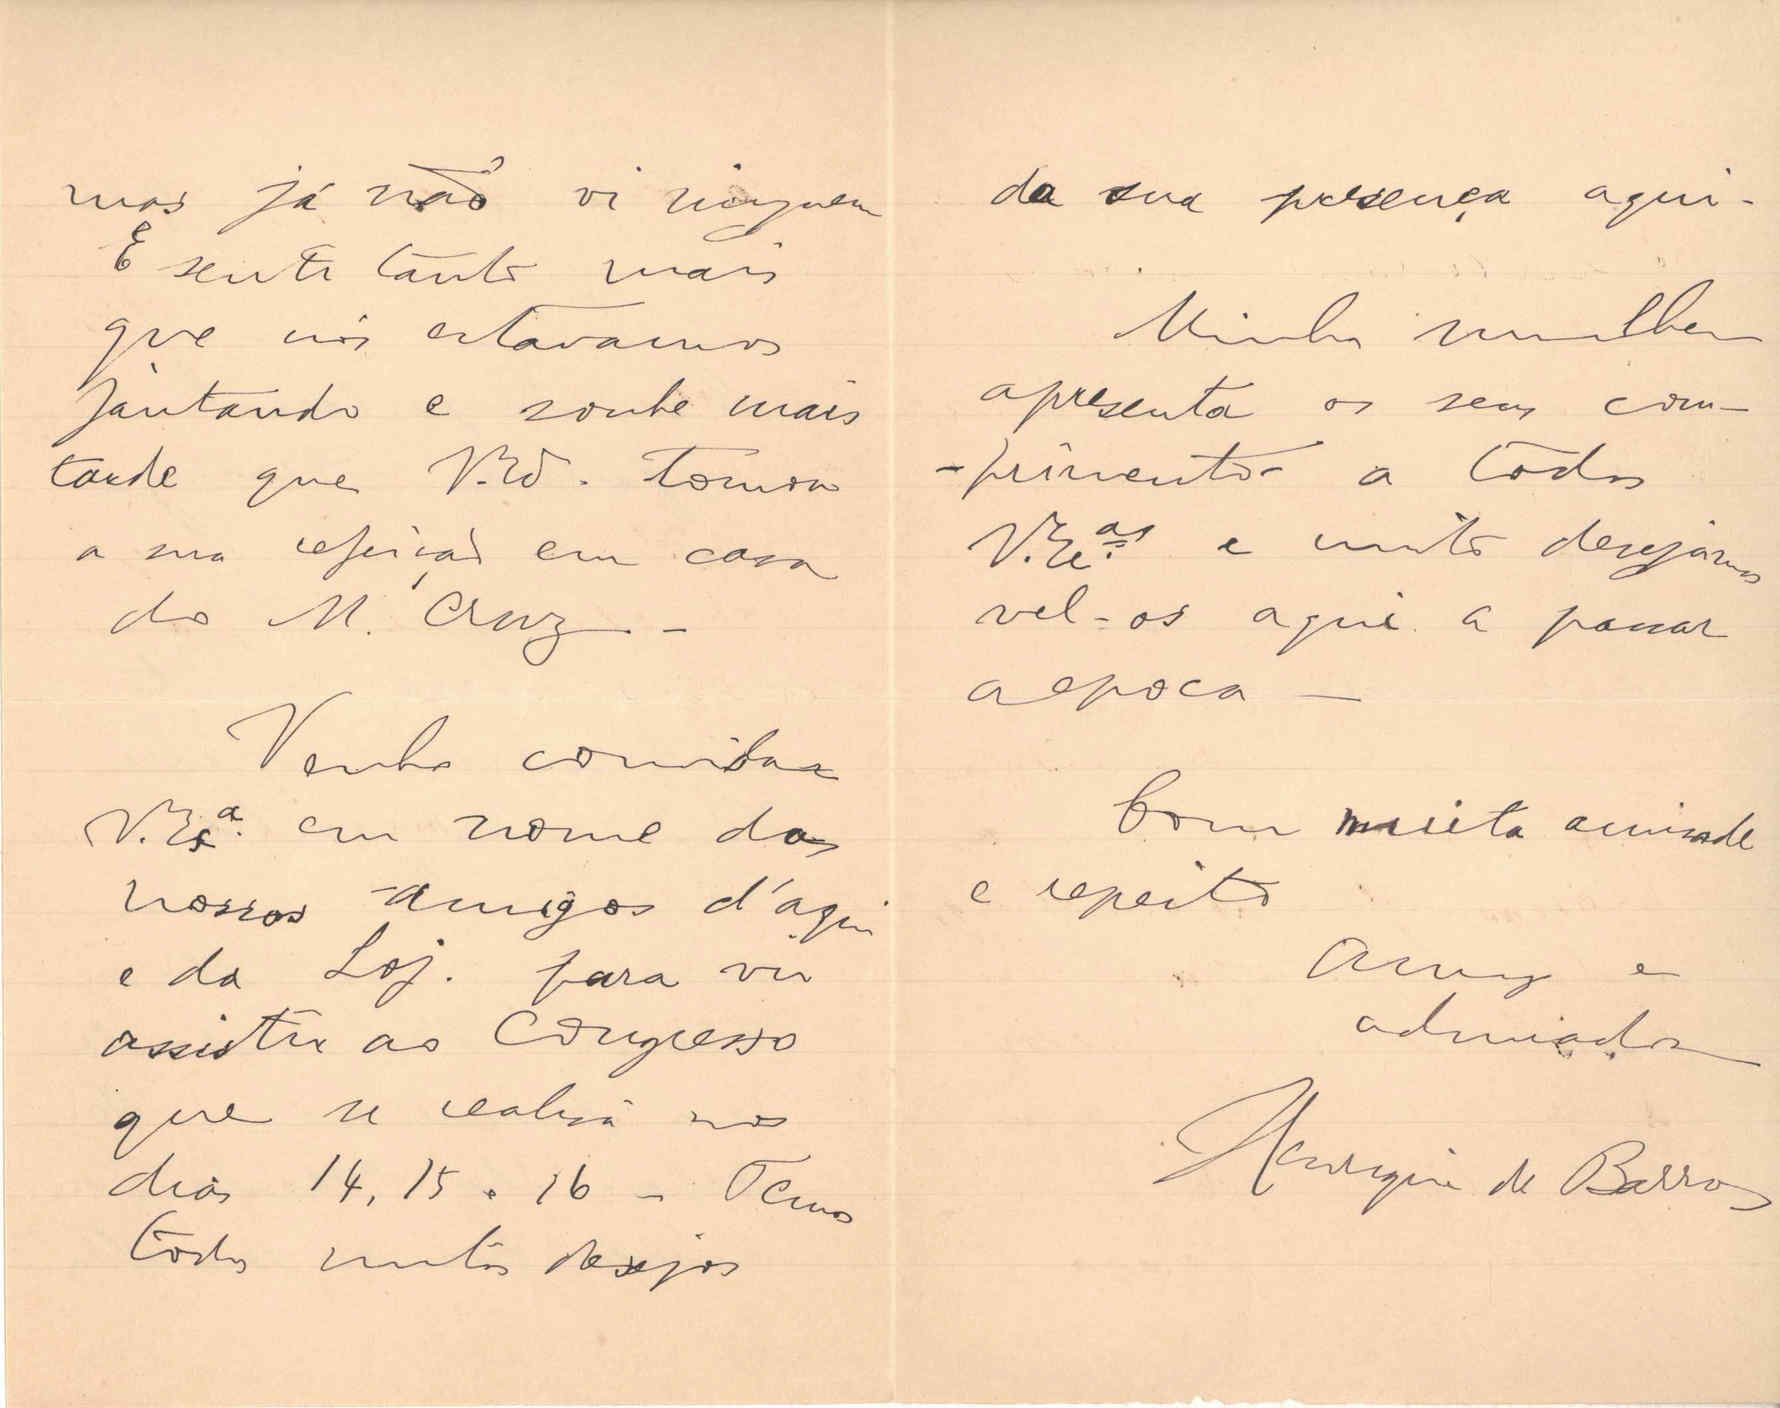 mas já não vi ninguem
E senti tanto mais
que nós estavamos
jantando e soube mais
tarde que V. Ex. tomou
a sua refeição em casa
do M. Cruz –
Venho convidar
V. Ex.ª em nome dos
nossos amigos d'aqui
e da Loj. para vir
assistir ao Congresso
que se realisa nos
dias 14, 15 e 16 – Temos
todos muitos desejos
da sua presença aqui –
Minha mulher
apresenta os seus com-
-primentos a todos
V. Ex.as e muito desejamos
vel-os aqui a passar
a epoca –
Com muita amisade
e respeito
Amigo e
admirador
Henrique de Barros